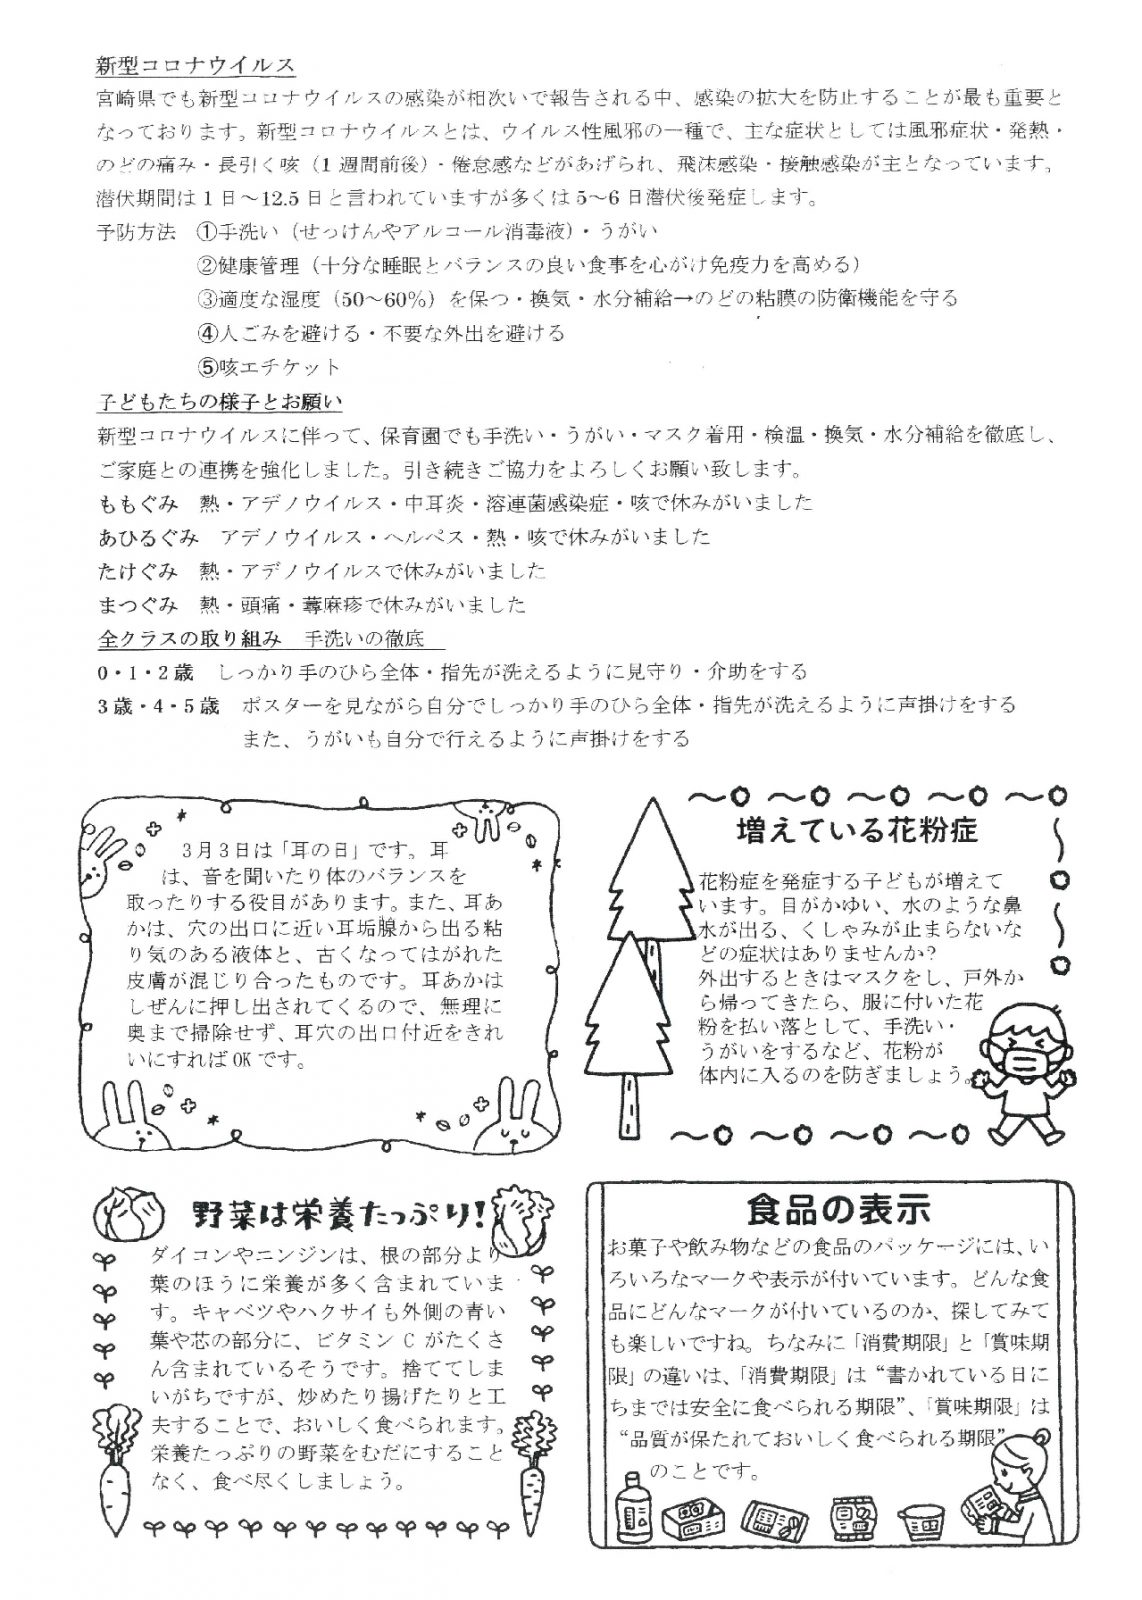 新型コロナウイルス
宮崎県でも新型コロナウイルスの感染が相次いで報告される中、感染の拡大を防止することが最も重要と
なっております。新型コロナウイルスとは、ウイルス性風邪の一種で、主な症状としては風邪症状・発熱・
のどの痛み・長引く咳（1 週間前後）・倦怠感などがあげられ、飛沫感染・接触感染が主となっています。
潜伏期間は 1 日～12.5 日と言われていますが多くは 5～6 日潜伏後発症します。
予防方法　①手洗い（せっけんやアルコール消毒液）・うがい
②健康管理（十分な睡眠とバランスの良い食事を心がけ免疫力を高める）
③適度な湿度（50～60%）を保つ・換気・水分補給→のどの粘膜の防衛機能を守る
④人ごみを避ける・不要な外出を避ける
⑤咳エチケット
子どもたちの様子とお願い
新型コロナウイルスに伴って、保育園でも手洗い・うがい・マスク着用・検温・換気・水分補給を徹底し、
ご家庭との連携を強化しました。引き続きご協力をよろしくお願い致します。
ももぐみ　熱・アデノウイルス・中耳炎・溶連菌感染症・咳で休みがいました
あひるぐみ　アデノウイルス・ヘルペス・熱・咳で休みがいました
たけぐみ　熱・アデノウイルスで休みがいました
まつぐみ　熱・頭痛・蕁麻疹で休みがいました
全クラスの取り組み　手洗いの徹底
0・1・2 歳　しっかり手のひら全体・指先が洗えるように見守り・介助をする
3 歳・4・5 歳　ポスターを見ながら自分でしっかり手のひら全体・指先が洗えるように声掛けをする
また、うがいも自分で行えるように声掛けをする
3月3日は「耳の日」です。耳
は、音を聞いたり体のバランスを
取ったりする役目があります。また、耳あ
かは、穴の出口に近い耳垢腺から出る粘
り気のある液体と、古くなってはがれた
皮膚が混じり合ったものです。耳あかは
しぜんに押し出されてくるので、無理に
奥まで掃除せず、耳穴の出口付近をきれ
いにすればOKです。
増えている花粉症
花粉症を発症する子どもが増えて
います。目がかゆい、水のような鼻
水が出る、くしゃみが止まらないな
どの症状はありませんか?
外出するときはマスクをし、戸外か
ら帰ってきたら、服に付いた花
粉を払い落として、手洗い・
うがいをするなど、花粉が
体内に入るのを防ぎましょう。
野菜は栄養たっぷり!
ダイコンやニンジンは、根の部分より
葉のほうに栄養が多く含まれていま
す。キャベツやハクサイも外側の青い
葉や芯の部分に、ビタミン C がたくさ
ん含まれているそうです。捨ててしま
いがちですが、炒めたり揚げたりと工
夫することで、おいしく食べられます。
栄養たっぷりの野菜をむだにすること
なく、食べ尽くしましょう。
食品の表示
お菓子や飲み物などの食品のパッケージには、い
ろいろなマークや表示が付いています。どんな食
品にどんなマークが付いているのか、探してみて
も楽しいですね。ちなみに「消費期限」と「賞味期
限」の違いは、「消費期限」は“書かれている日に
ちまでは安全に食べられる期限”、「賞味期限」は
“品質が保たれておいしく食べられる期限”
のことです。